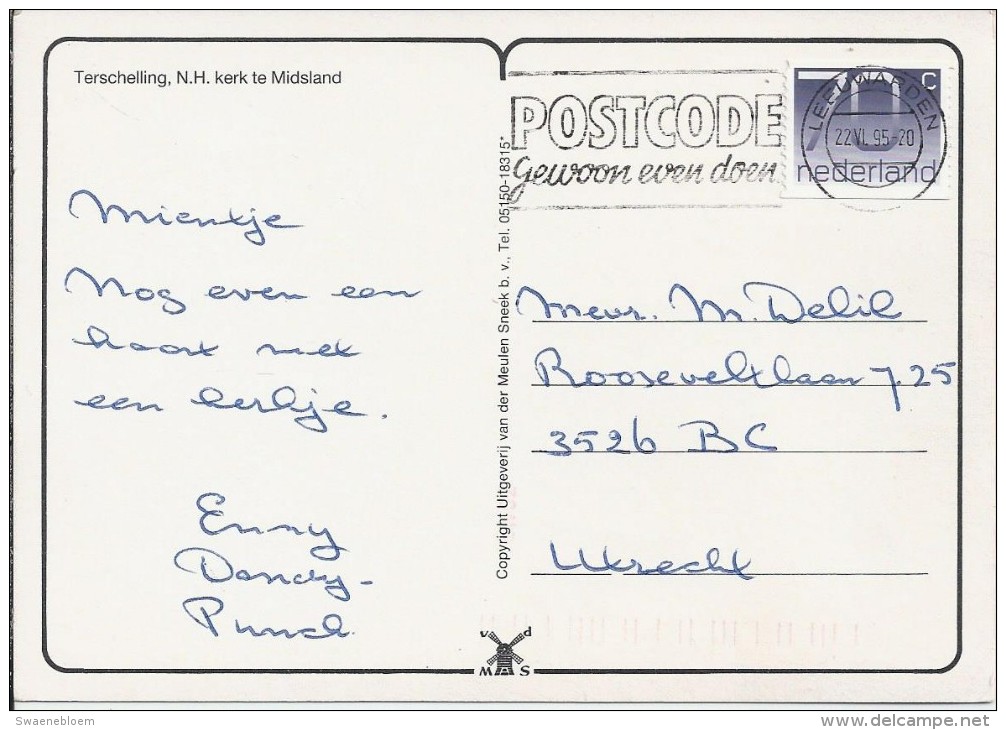 Terschelling, N.H. kerk te Midsland
POSTCODE
gewoon even doen
70 c
nederland
LEEUWARDEN
22.VI.95-20
Mientje
Nog even een
kaart met
een kerkje.
Enny
Dandy-
Punch
Copyright Uitgeverij van der Meulen Sneek b.v., Tel. 05150-18315*
Mevr. M. Delil
Rooseveltlaan 725
3526 BC
Utrecht
v d
M A S
Swaenebloem
www.delcampe.net